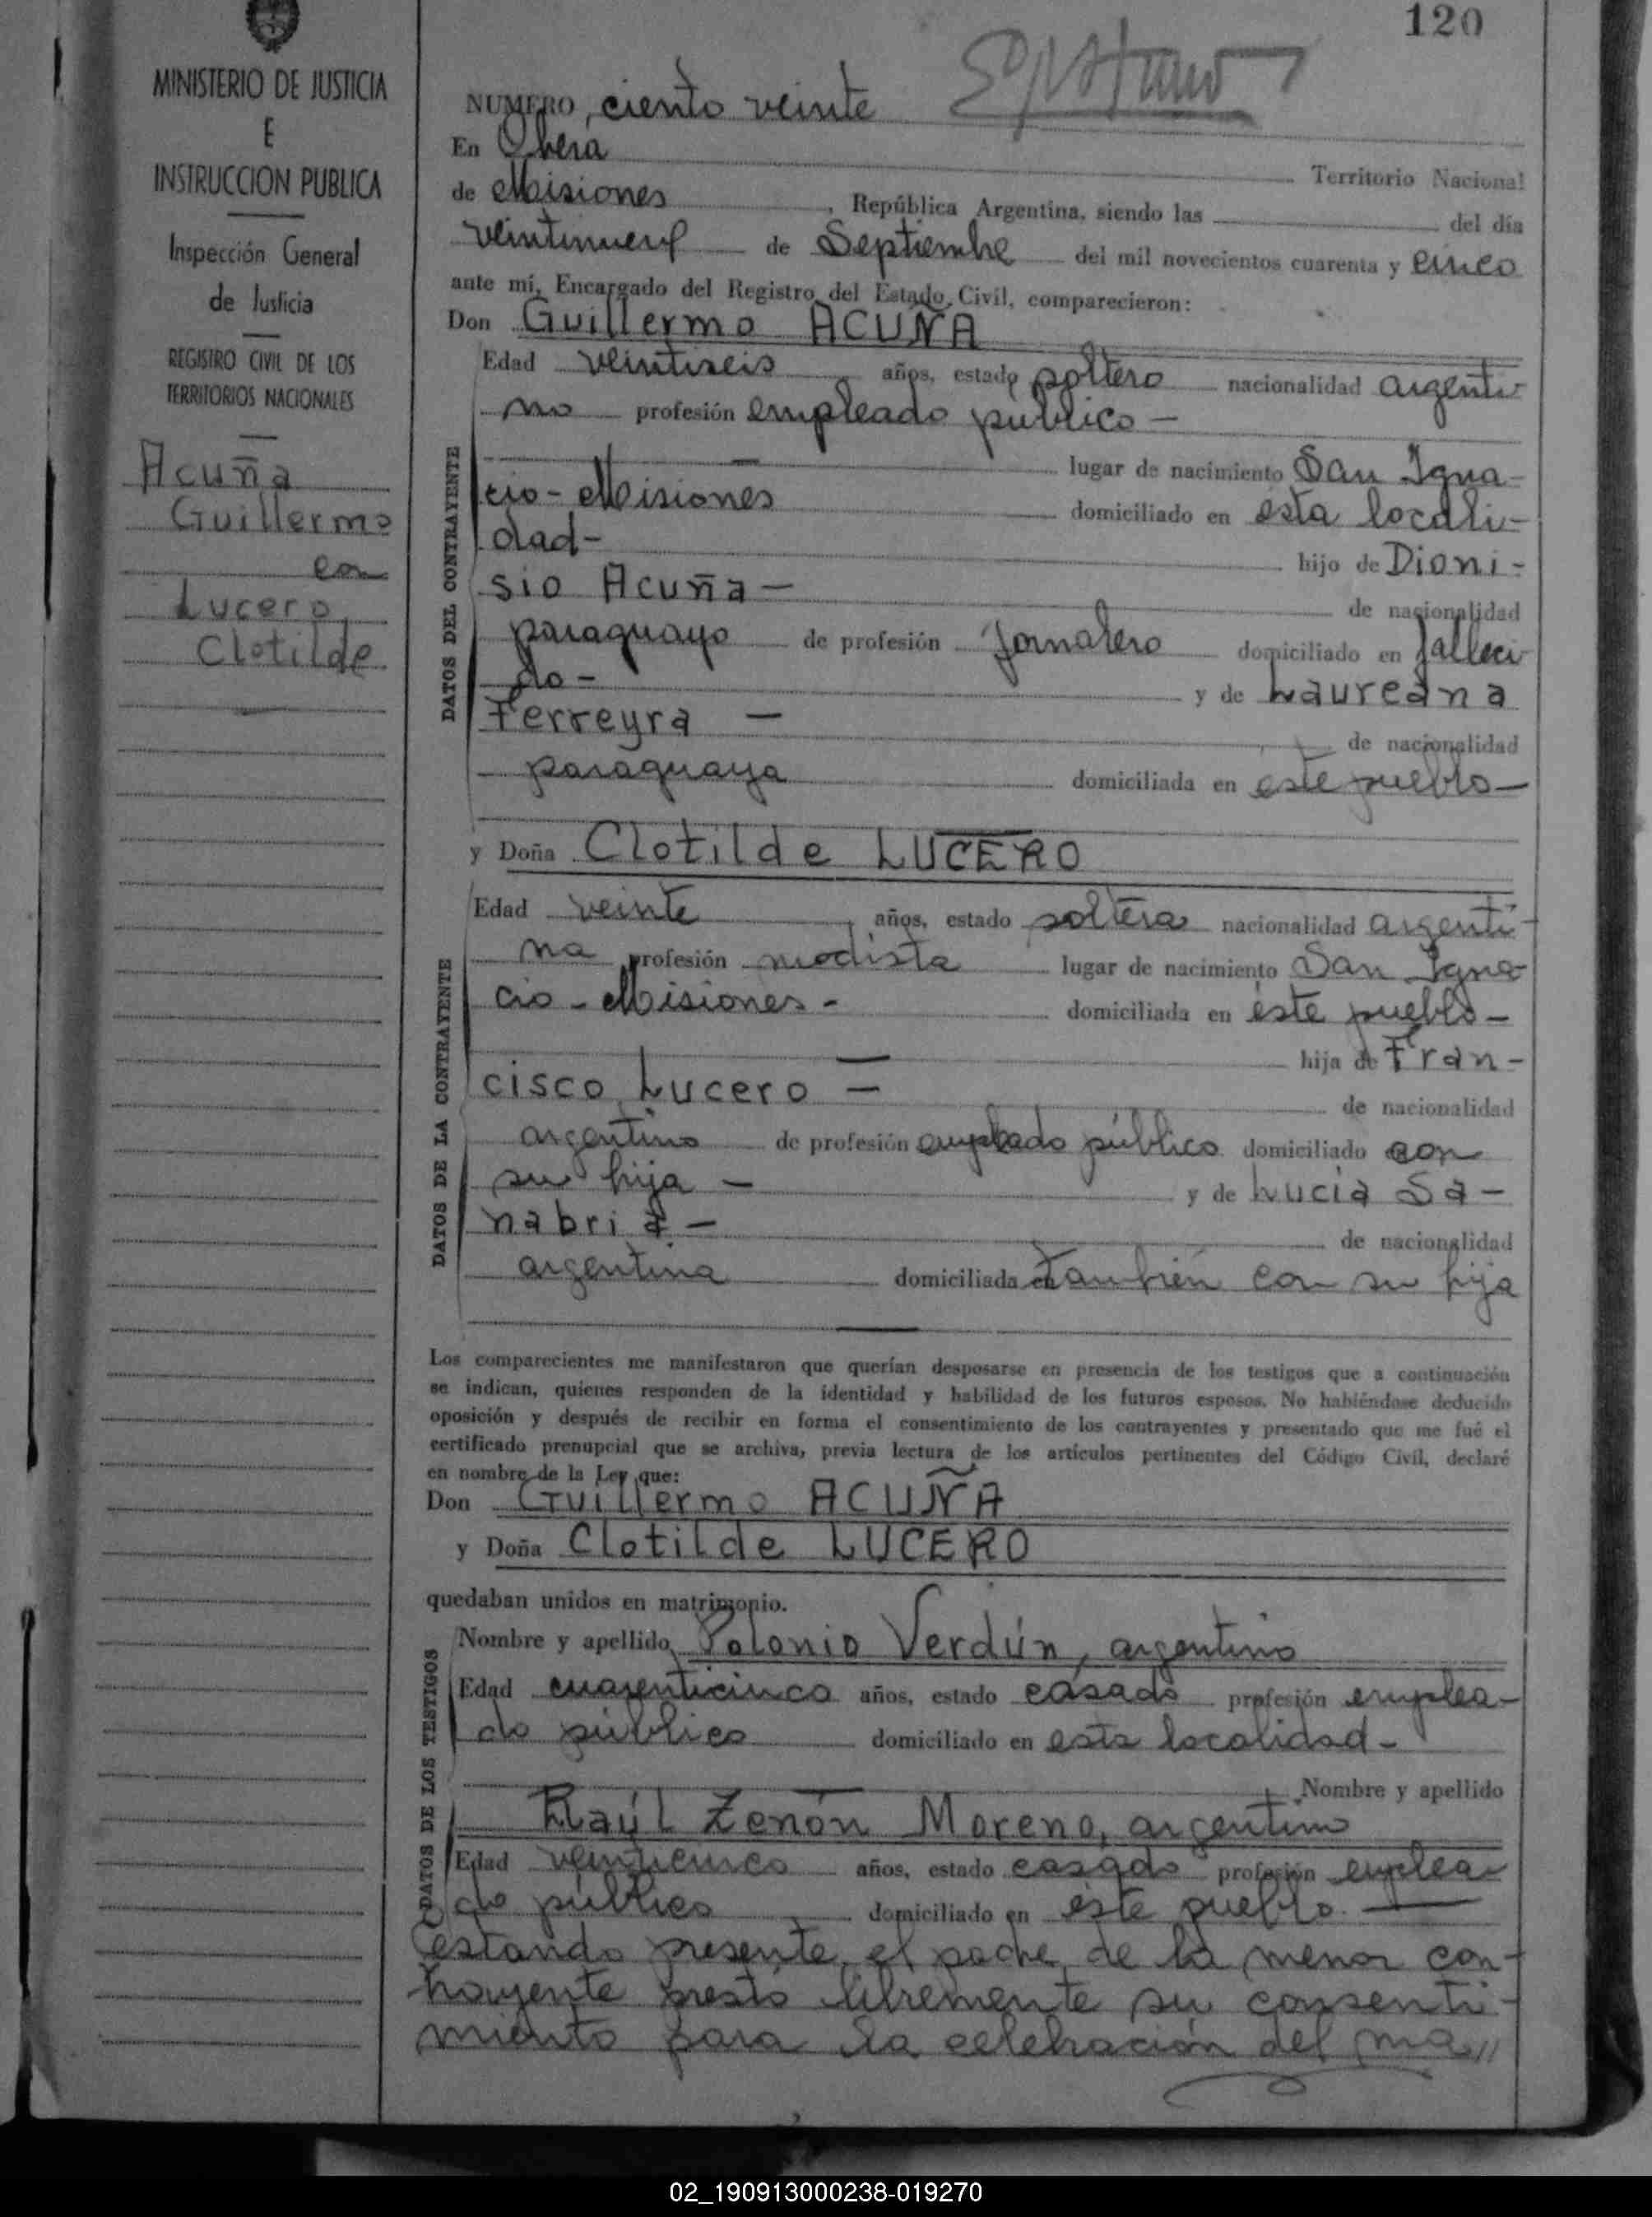 120
MINISTERIO DE JUSTICIA
E
INSTRUCCION PUBLICA
Inspección General
de Justicia
REGISTRO CIVIL DE LOS
TERRITORIOS NACIONALES
Acuña
Guillermo
con
Lucero,
Clotilde
NUMERO, ciento veinte
En Oberá Territorio Nacional
de Misiones, República Argentina, siendo las del día
veintinueve de Septiembre del mil novecientos cuarenta y cinco
ante mí, Encargado del Registro del Estado Civil, comparecieron:
Don Guillermo ACUÑA
DATOS DEL CONTRAYENTE
Edad veintiseis años, estado soltero nacionalidad argenti
no profesión empleado público —
lugar de nacimiento San Igna-
cio - Misiones domiciliado en ésta locali-
dad- hijo de Dioni-
sio Acuña — de nacionalidad
paraguayo de profesión Jornalero domiciliado en falleci
do- y de Laureana
Ferreyra — de nacionalidad
paraguaya domiciliada en este pueblo—
y Doña Clotilde LUCERO
DATOS DE LA CONTRAYENTE
Edad veinte años, estado soltera nacionalidad argenti-
na profesión modista lugar de nacimiento San Igna
cio - Misiones - domiciliada en éste pueblo—
hija de Fran-
cisco Lucero — de nacionalidad
argentino de profesión empleado público domiciliado con
su hija — y de Lucia Sa-
nabria — de nacionalidad
argentina domiciliada en también con su hija
Los comparecientes me manifestaron que querían desposarse en presencia de los testigos que a continuación
se indican, quienes responden de la identidad y habilidad de los futuros esposos. No habiéndose deducido
oposición y después de recibir en forma el consentimiento de los contrayentes y presentado que me fué el
certificado prenupcial que se archiva, previa lectura de los artículos pertinentes del Código Civil, declaré
en nombre de la Ley que:
Don Guillermo ACUÑA
y Doña Clotilde LUCERO
quedaban unidos en matrimonio.
DATOS DE LOS TESTIGOS
Nombre y apellido Polonio Verdún, argentino
Edad cuarenticinco años, estado casado profesión emplea-
do público domiciliado en esta localidad-
Nombre y apellido
Raúl Zenón Moreno, argentino
Edad veinticinco años, estado casado profesión emplea
do público domiciliado en éste pueblo. —
estando presente el padre de la menor con-
trayente prestó libremente su consenti-
miento para la celebración del ma//
02_190913000238-019270